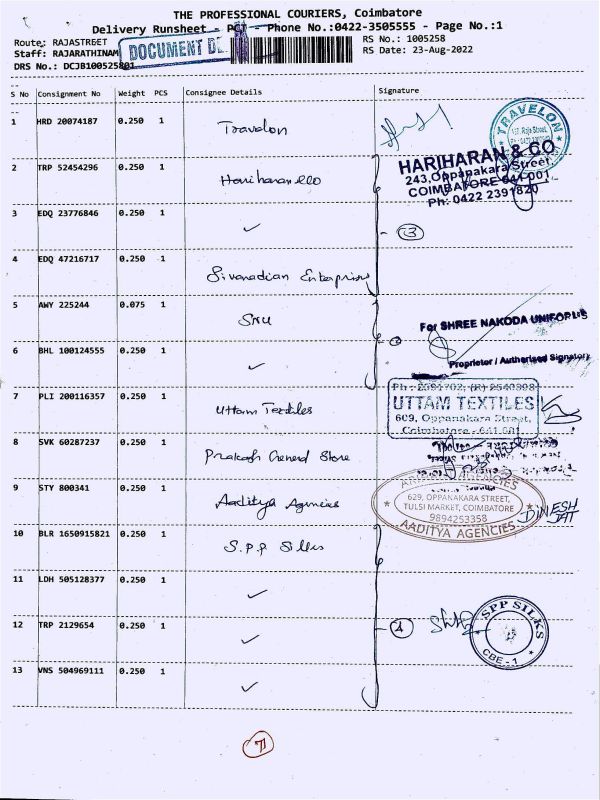 THE PROFESSIONAL COURIERS, Coimbatore
Delivery Runsheet - PCT - Phone No.:0422-3505555 - Page No.:1
Route: RAJASTREET
RS No.: 1005258
Staff: RAJARATHINAM
DOCUMENT DE
RS Date: 23-Aug-2022
DRS No.: DCJB100525801
S No Consignment No Weight PCS Consignee Details Signature
1 HRD 20074187 0.250 1 Travelon
TRAVELON
2 TRP 52454296 0.250 1 Hariharan & co
HARIHARAN & CO
243,Oppanakara Street,
COIMBATORE 641 001
Ph: 0422 2391820
3 EDQ 23776846 0.250 1 ✓
3
4 EDQ 47216717 0.250 1 Sivanadian Enterprises
5 AWY 225244 0.075 1 SNU
For SHREE NAKODA UNIFORMS
6 BHL 100124555 0.250 1 ✓
Proprietor / Authorised Signatory
7 PLI 200116357 0.250 1 Uttam Textiles
UTTAM TEXTILES
609, Oppanakara Street,
Coimbatore - 641 001
8 SVK 60287237 0.250 1 Prakash General Store
9 STY 800341 0.250 1 Aaditya Agencies
AGENCIES
629, OPPANAKARA STREET,
TULSI MARKET, COIMBATORE
9894253358
AADITYA AGENCIES
DINESH
10 BLR 1650915821 0.250 1 S.P.P Silks
11 LDH 505128377 0.250 1 ✓
12 TRP 2129654 0.250 1 ✓
4
SPP SILKS
CBE - 1
13 VNS 504969111 0.250 1 ✓
7